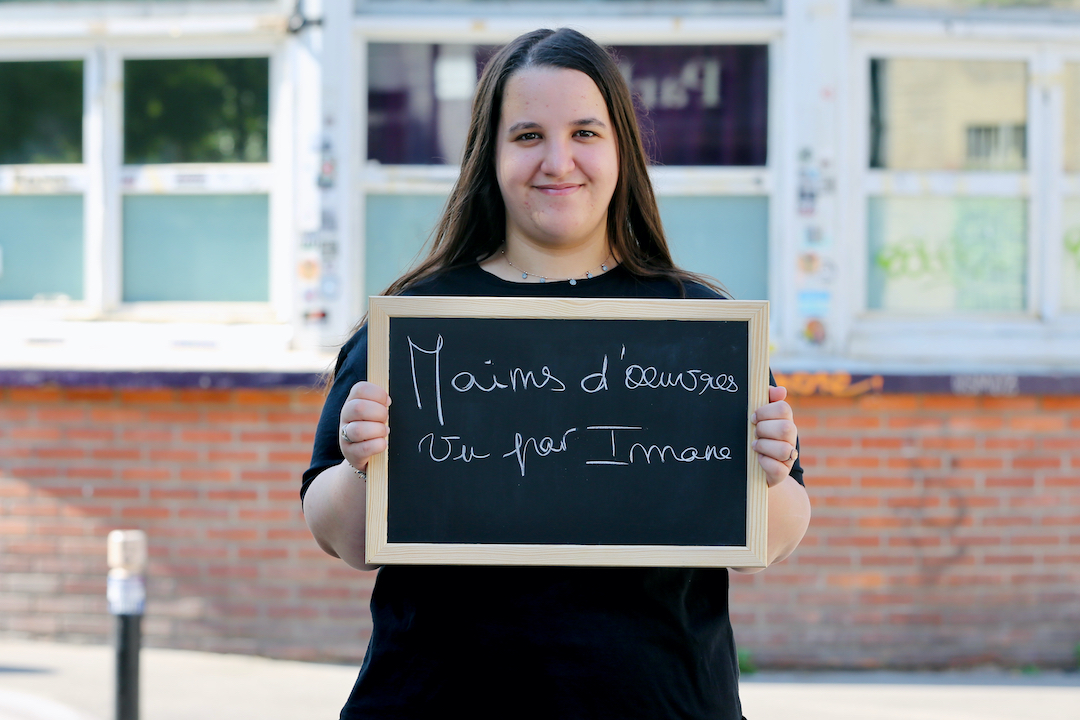 Mains d'œuvres
vu par Imane